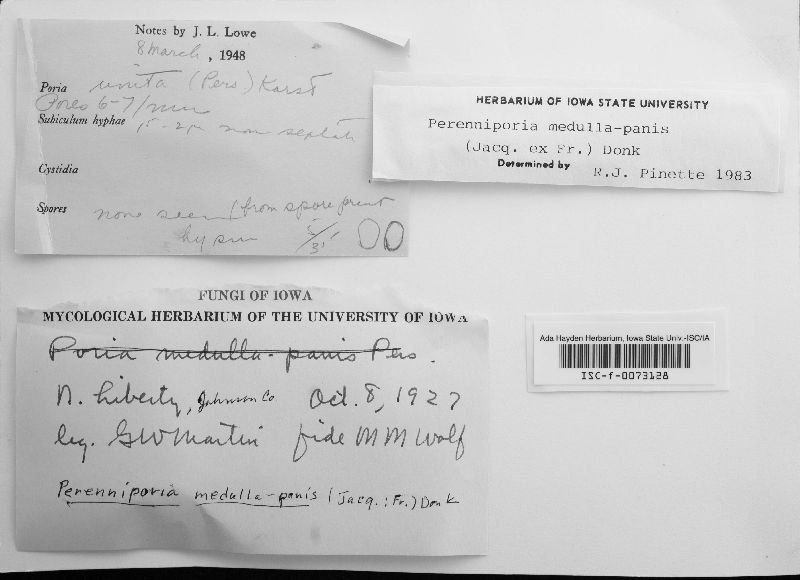 Notes by J. L. Lowe
8 March, 1948
Poria unita (Pers) Karst
Pores 6-7/mm
Subiculum hyphae 1.5-2µ non septate
Cystidia
Spores none seen (from spore print
HERBARIUM OF IOWA STATE UNIVERSITY
Perenniporia medulla-panis
(Jacq. ex Fr.) Donk
Determined by R.J. Pinette 1983
FUNGI OF IOWA
MYCOLOGICAL HERBARIUM OF THE UNIVERSITY OF IOWA
Poria medulla-panis Pers.
N. Liberty, Johnson Co. Oct. 8, 1927
leg. GW Martin fide M M Wolf
Perenniporia medulla-panis (Jacq.: Fr.) Donk
Ada Hayden Herbarium, Iowa State Univ.-ISC/IA
ISC-f-0073128